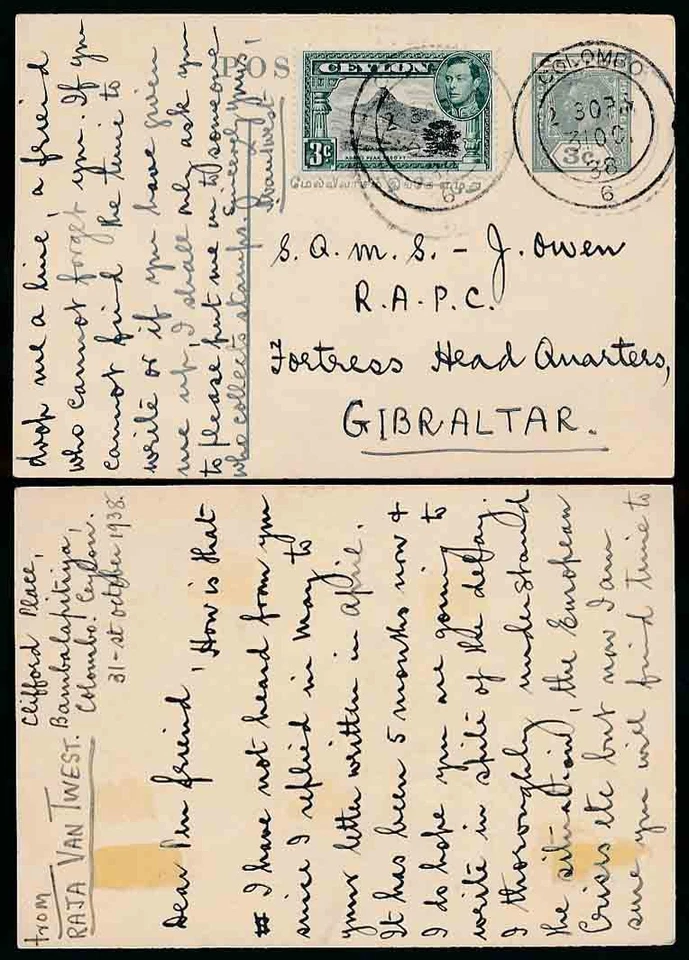 POS
CEYLON
3c
COLOMBO
2 30 PM
31 OC
38
6
3c
6
S.Q.M.S. - J. Owen
R.A.P.C.
Fortress Head Quarters,
GIBRALTAR.
from
RAJA VAN TWEST.
Clifford Place,
Bambalapitiya,
Colombo. Ceylon.
31-st october 1938.
Dear Pen friend, How is that
I have not heard from you
since I replied in May to
your letter written in april.
It has been 5 months now &
I do hope you are going to
write in spite of the delay.
I thoroughly understand
the situation, the European
Crisis etc but now I am
sure you will find time to
drop me a line, a friend
who cannot forget you. If you
cannot find the time to
write or if you have given
me up, I shall only ask you
to please put me on to someone
who collects stamps. Sincerely yours,